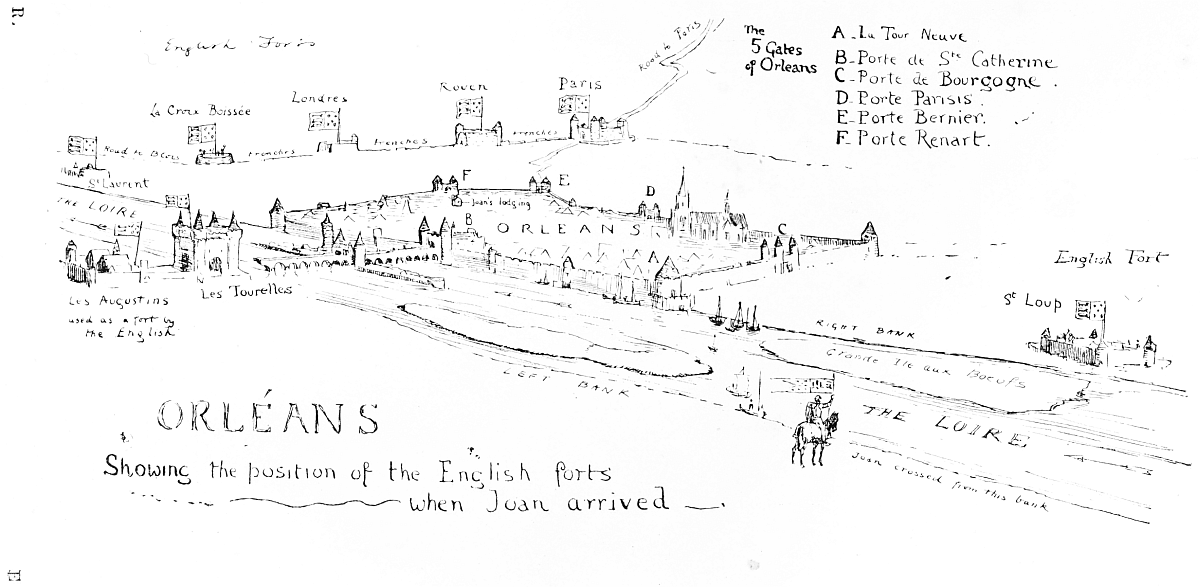 R.
English Forts
The
5 Gates
of Orleans
A - La Tour Neuve
B - Porte de Ste Catherine
C - Porte de Bourgogne.
D - Porte Parisis.
E - Porte Bernier.
F - Porte Renart.
Road to Paris
Paris
Rouen
Londres
La Croix Boissée
trenches
trenches
trenches
Road to Blois
St Laurent
THE LOIRE
F
E
D
Joan's lodging
B
ORLEANS
C
English Fort
St Loup
Les Augustins
used as a fort by
the English
Les Tourelles
RIGHT BANK
Grande Ile aux Boeufs
LEFT BANK
THE LOIRE
Joan crossed from this bank
ORLÉANS
Showing the position of the English forts
when Joan arrived